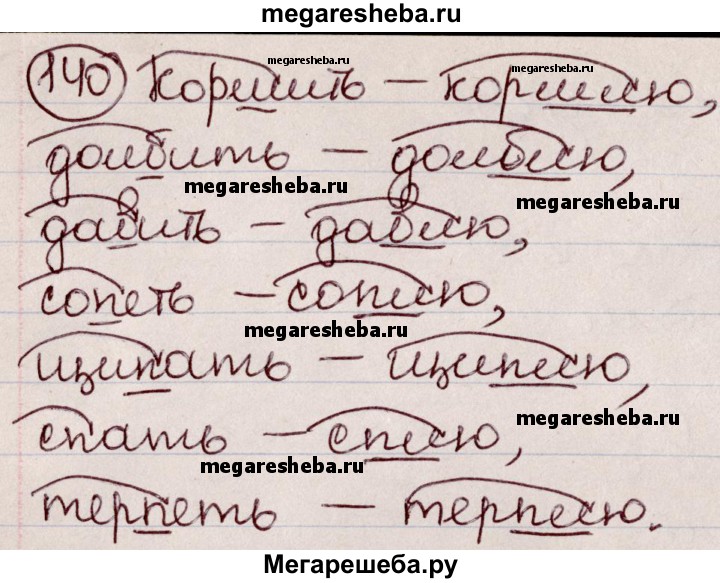 megaresheba.ru
140 Кормить – кормлю,
megaresheba.ru
megaresheba.ru
долбить – долблю,
megaresheba.ru
megaresheba.ru
давить – давлю,
сопеть – соплю,
megaresheba.ru
щипать – щиплю,
megaresheba.ru
спать – сплю,
megaresheba.ru
терпеть – терплю.
Мегарешеба.ру